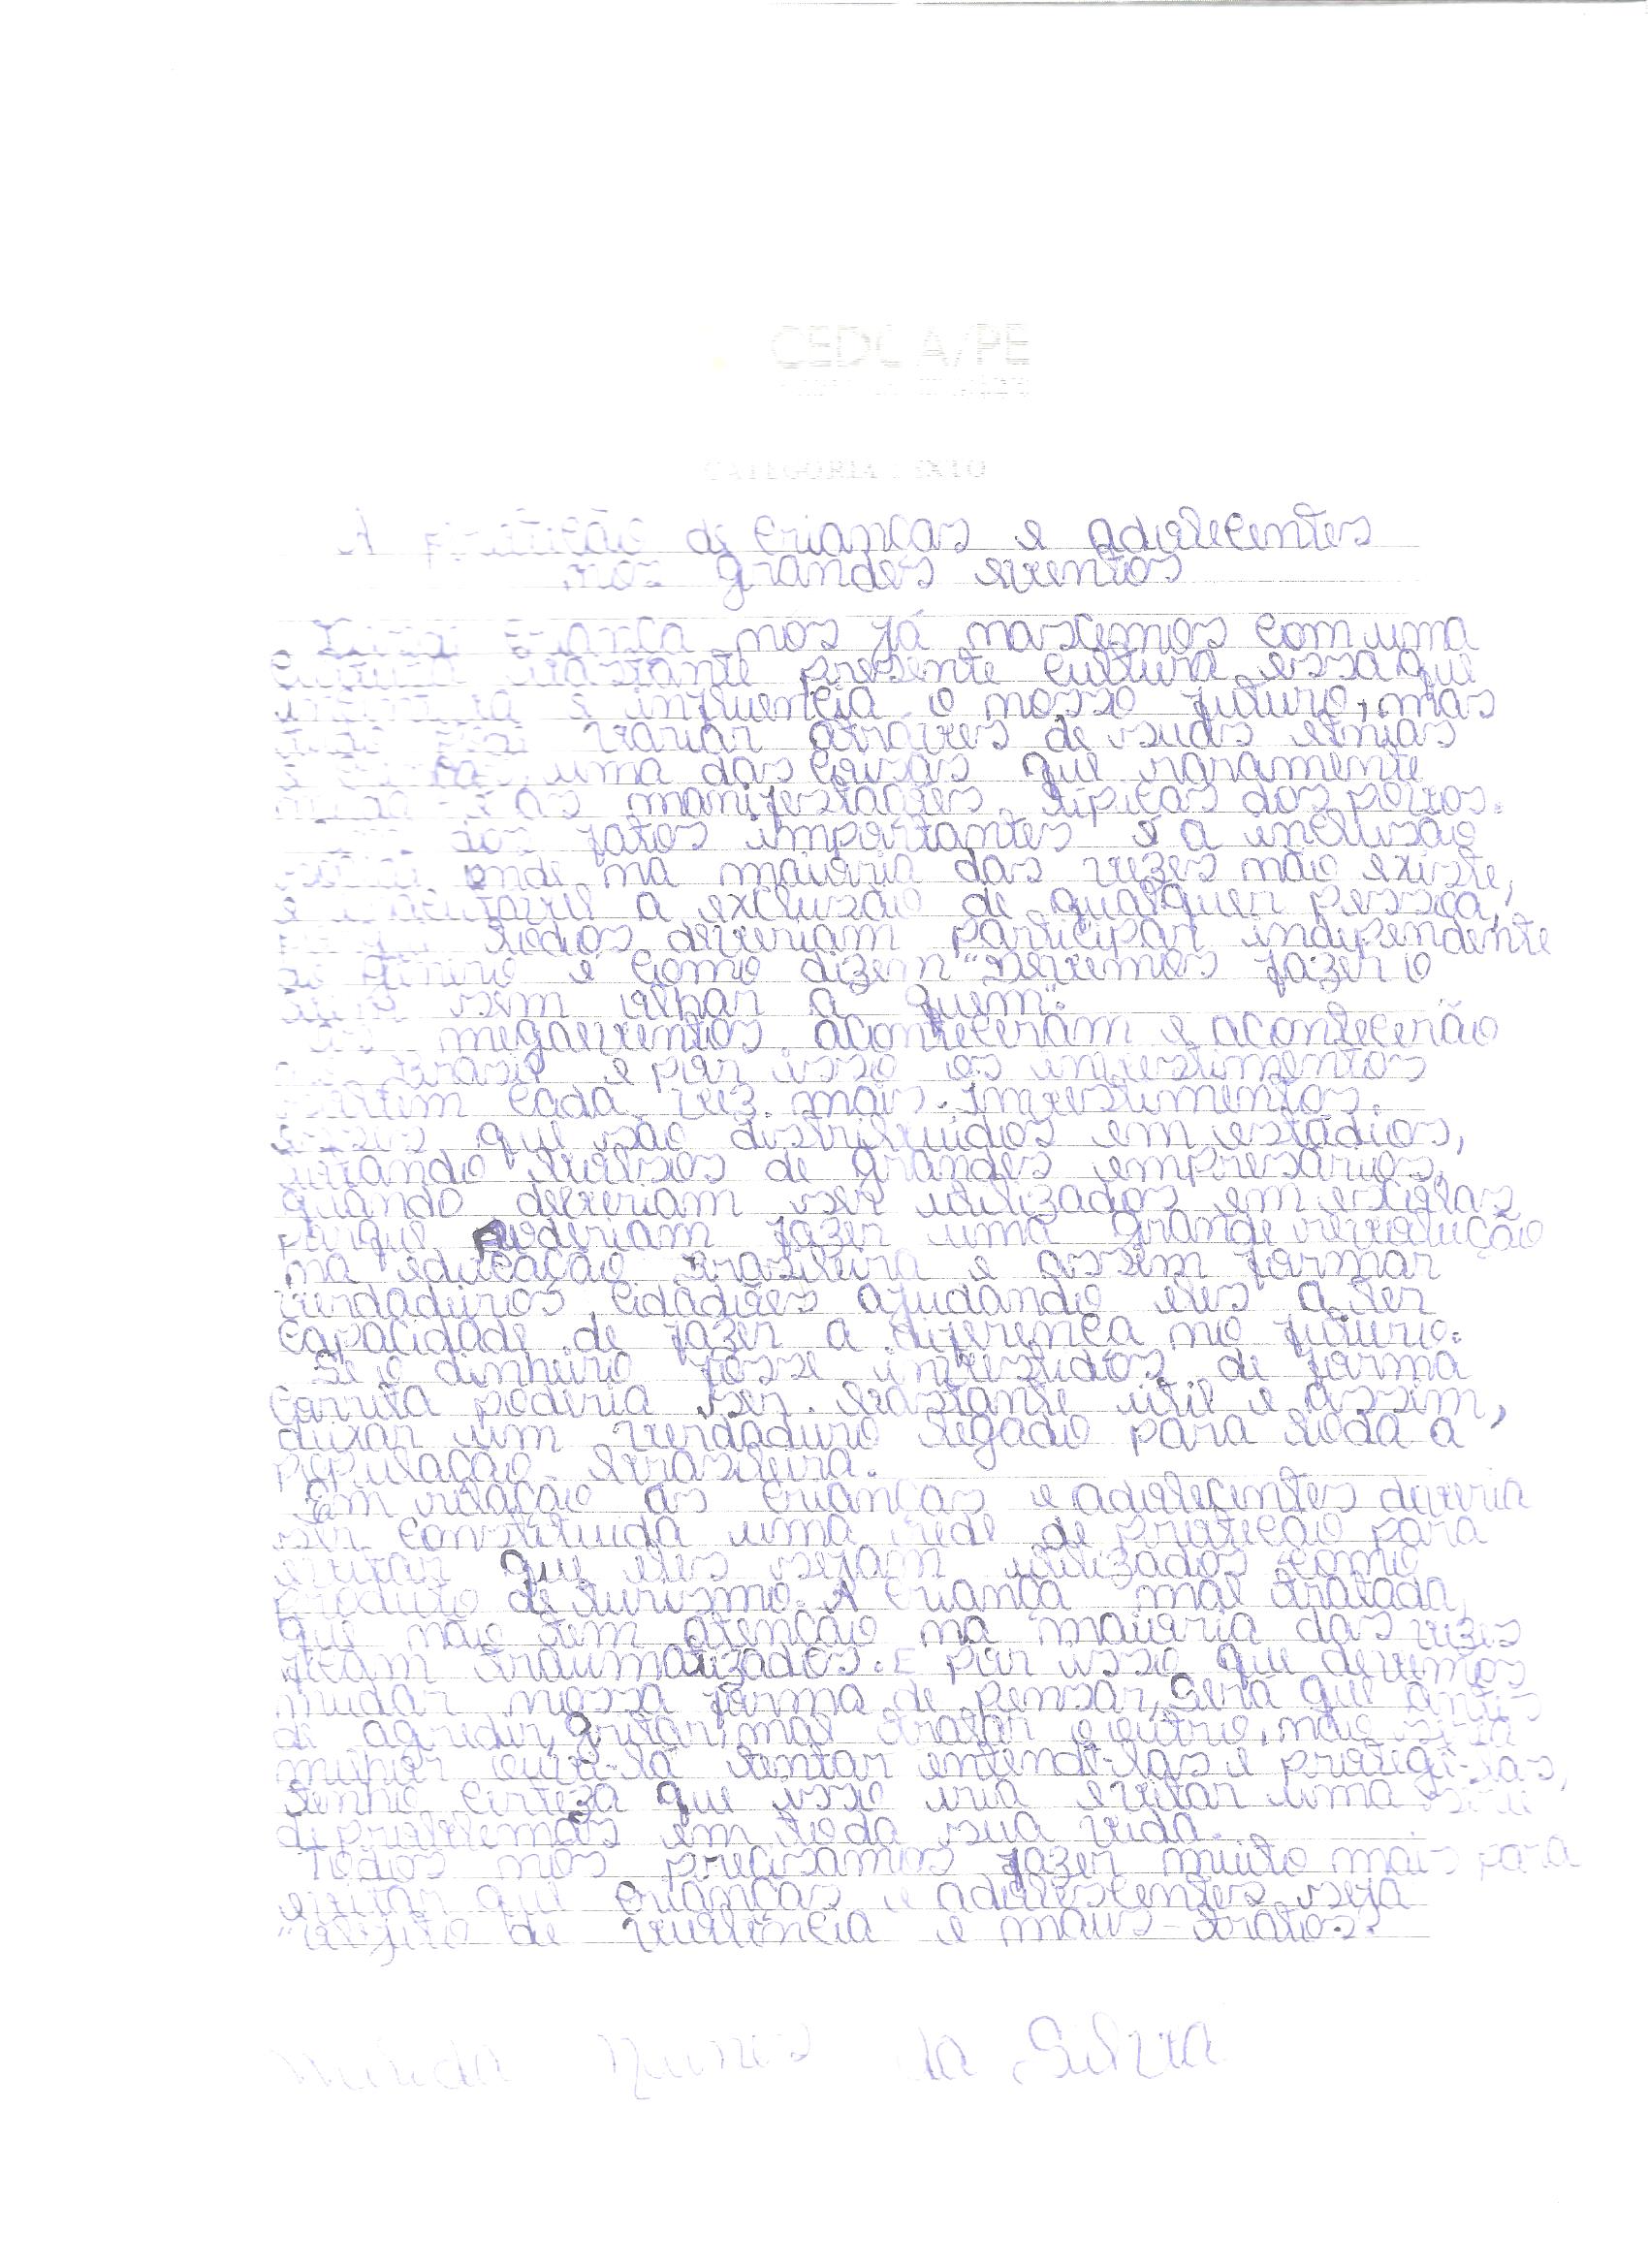 CEDCA/PE
CATEGORIA
A proteção de crianças e adolecentes
nos grandes eventos
nos já nascemos com uma
cultura bastante presente cultura essa que
e influencia o nosso futuro, mas
variar através de suas etnias
uma das coisas que raramente
muda as manifestações típicas dos povos.
dos fatos importantes é a inclusão
onde na maioria das vezes não existe,
a exclusão de qualquer pessoa,
todos deveriam participar independente
e como dizem "Devemos fazer o
sem olhar a quem".
megaeventos aconteceram e acontecerão
Brasil e por isso os investimentos
cada vez mais. Investimentos.
esses que são distribuídos em estádios,
bolsos de grandes empresários,
quando deveriam ser utilizados em escolas
porque poderiam fazer uma grande revolução
na educação brasileira e assim formar
verdadeiros cidadões ajudando eles a ter
capacidade de fazer a diferença no futuro.
Se o dinheiro fosse investidos de forma
correta poderia ser bastante util e assim,
deixar um verdadeiro legado para toda a
população brasileira.
Em relação as crianças e adolecentes deveria
ser construida uma rede de proteção para
evitar que eles sejam utilizados como
produto de turismo. A criança mal tratada,
que não tem atenção na maioria das vezes
ficam traumatizados. E por isso que devemos
mudar nossa forma de pensar, Será que antes
de agredir, gritar, mal tratar o outro, não seria
melhor tentar entende-las e protege-las,
Tenho certeza que isso iria evitar uma serie
de problemas em toda sua vida.
Todos nos precisamos fazer muito mais para
evitar que crianças e adolescentes seja
"objeto de violência e maus-tratos."
Nunes da Silva